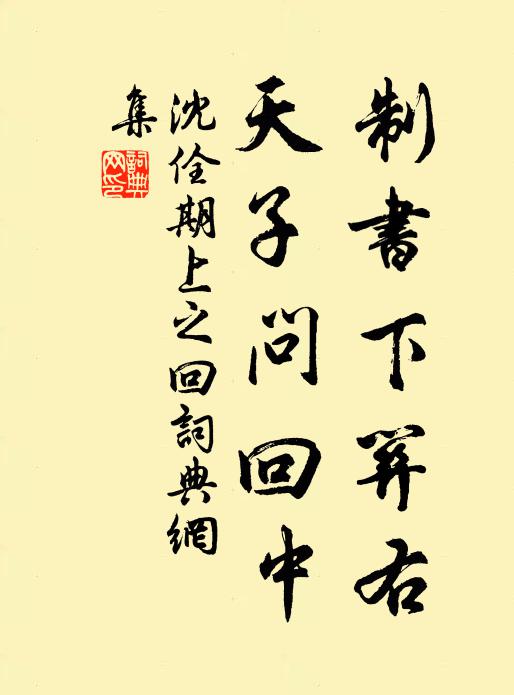 制書下關右
天子問回中
沈佺期上之回詞典網
集
詞典网印